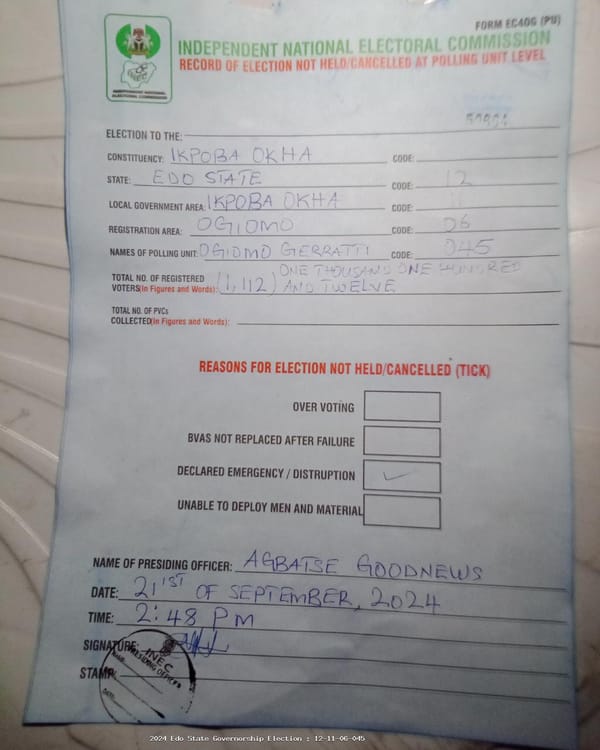 FORM EC40G (PU)
INDEPENDENT NATIONAL ELECTORAL COMMISSION
RECORD OF ELECTION NOT HELD/CANCELLED AT POLLING UNIT LEVEL
INDEPENDENT NATIONAL
ELECTORAL COMMISSION
ELECTION TO THE:
CONSTITUENCY: IKPOBA OKHA CODE:
STATE: EDO STATE CODE: 12
LOCAL GOVERNMENT AREA: IKPOBA OKHA CODE: 11
REGISTRATION AREA: OGIOMO CODE: 06
NAMES OF POLLING UNIT: OGIOMO GERRATTI CODE: 045
TOTAL NO. OF REGISTERED
VOTERS(In Figures and Words): (1,112) ONE THOUSAND ONE HUNDRED
AND TWELVE
TOTAL NO. OF PVCs
COLLECTED(In Figures and Words):
REASONS FOR ELECTION NOT HELD/CANCELLED (TICK)
OVER VOTING
BVAS NOT REPLACED AFTER FAILURE
DECLARED EMERGENCY / DISTRUPTION ✓
UNABLE TO DEPLOY MEN AND MATERIAL
NAME OF PRESIDING OFFICER: AGBATSE GOODNEWS
DATE: 21ST OF SEPTEMBER, 2024
TIME: 2:48 PM
SIGNATURE:
STAMP:
INEC
PRESIDING OFFICER
NAME:
DATE:
2024 Edo State Governorship Election : 12-11-06-045